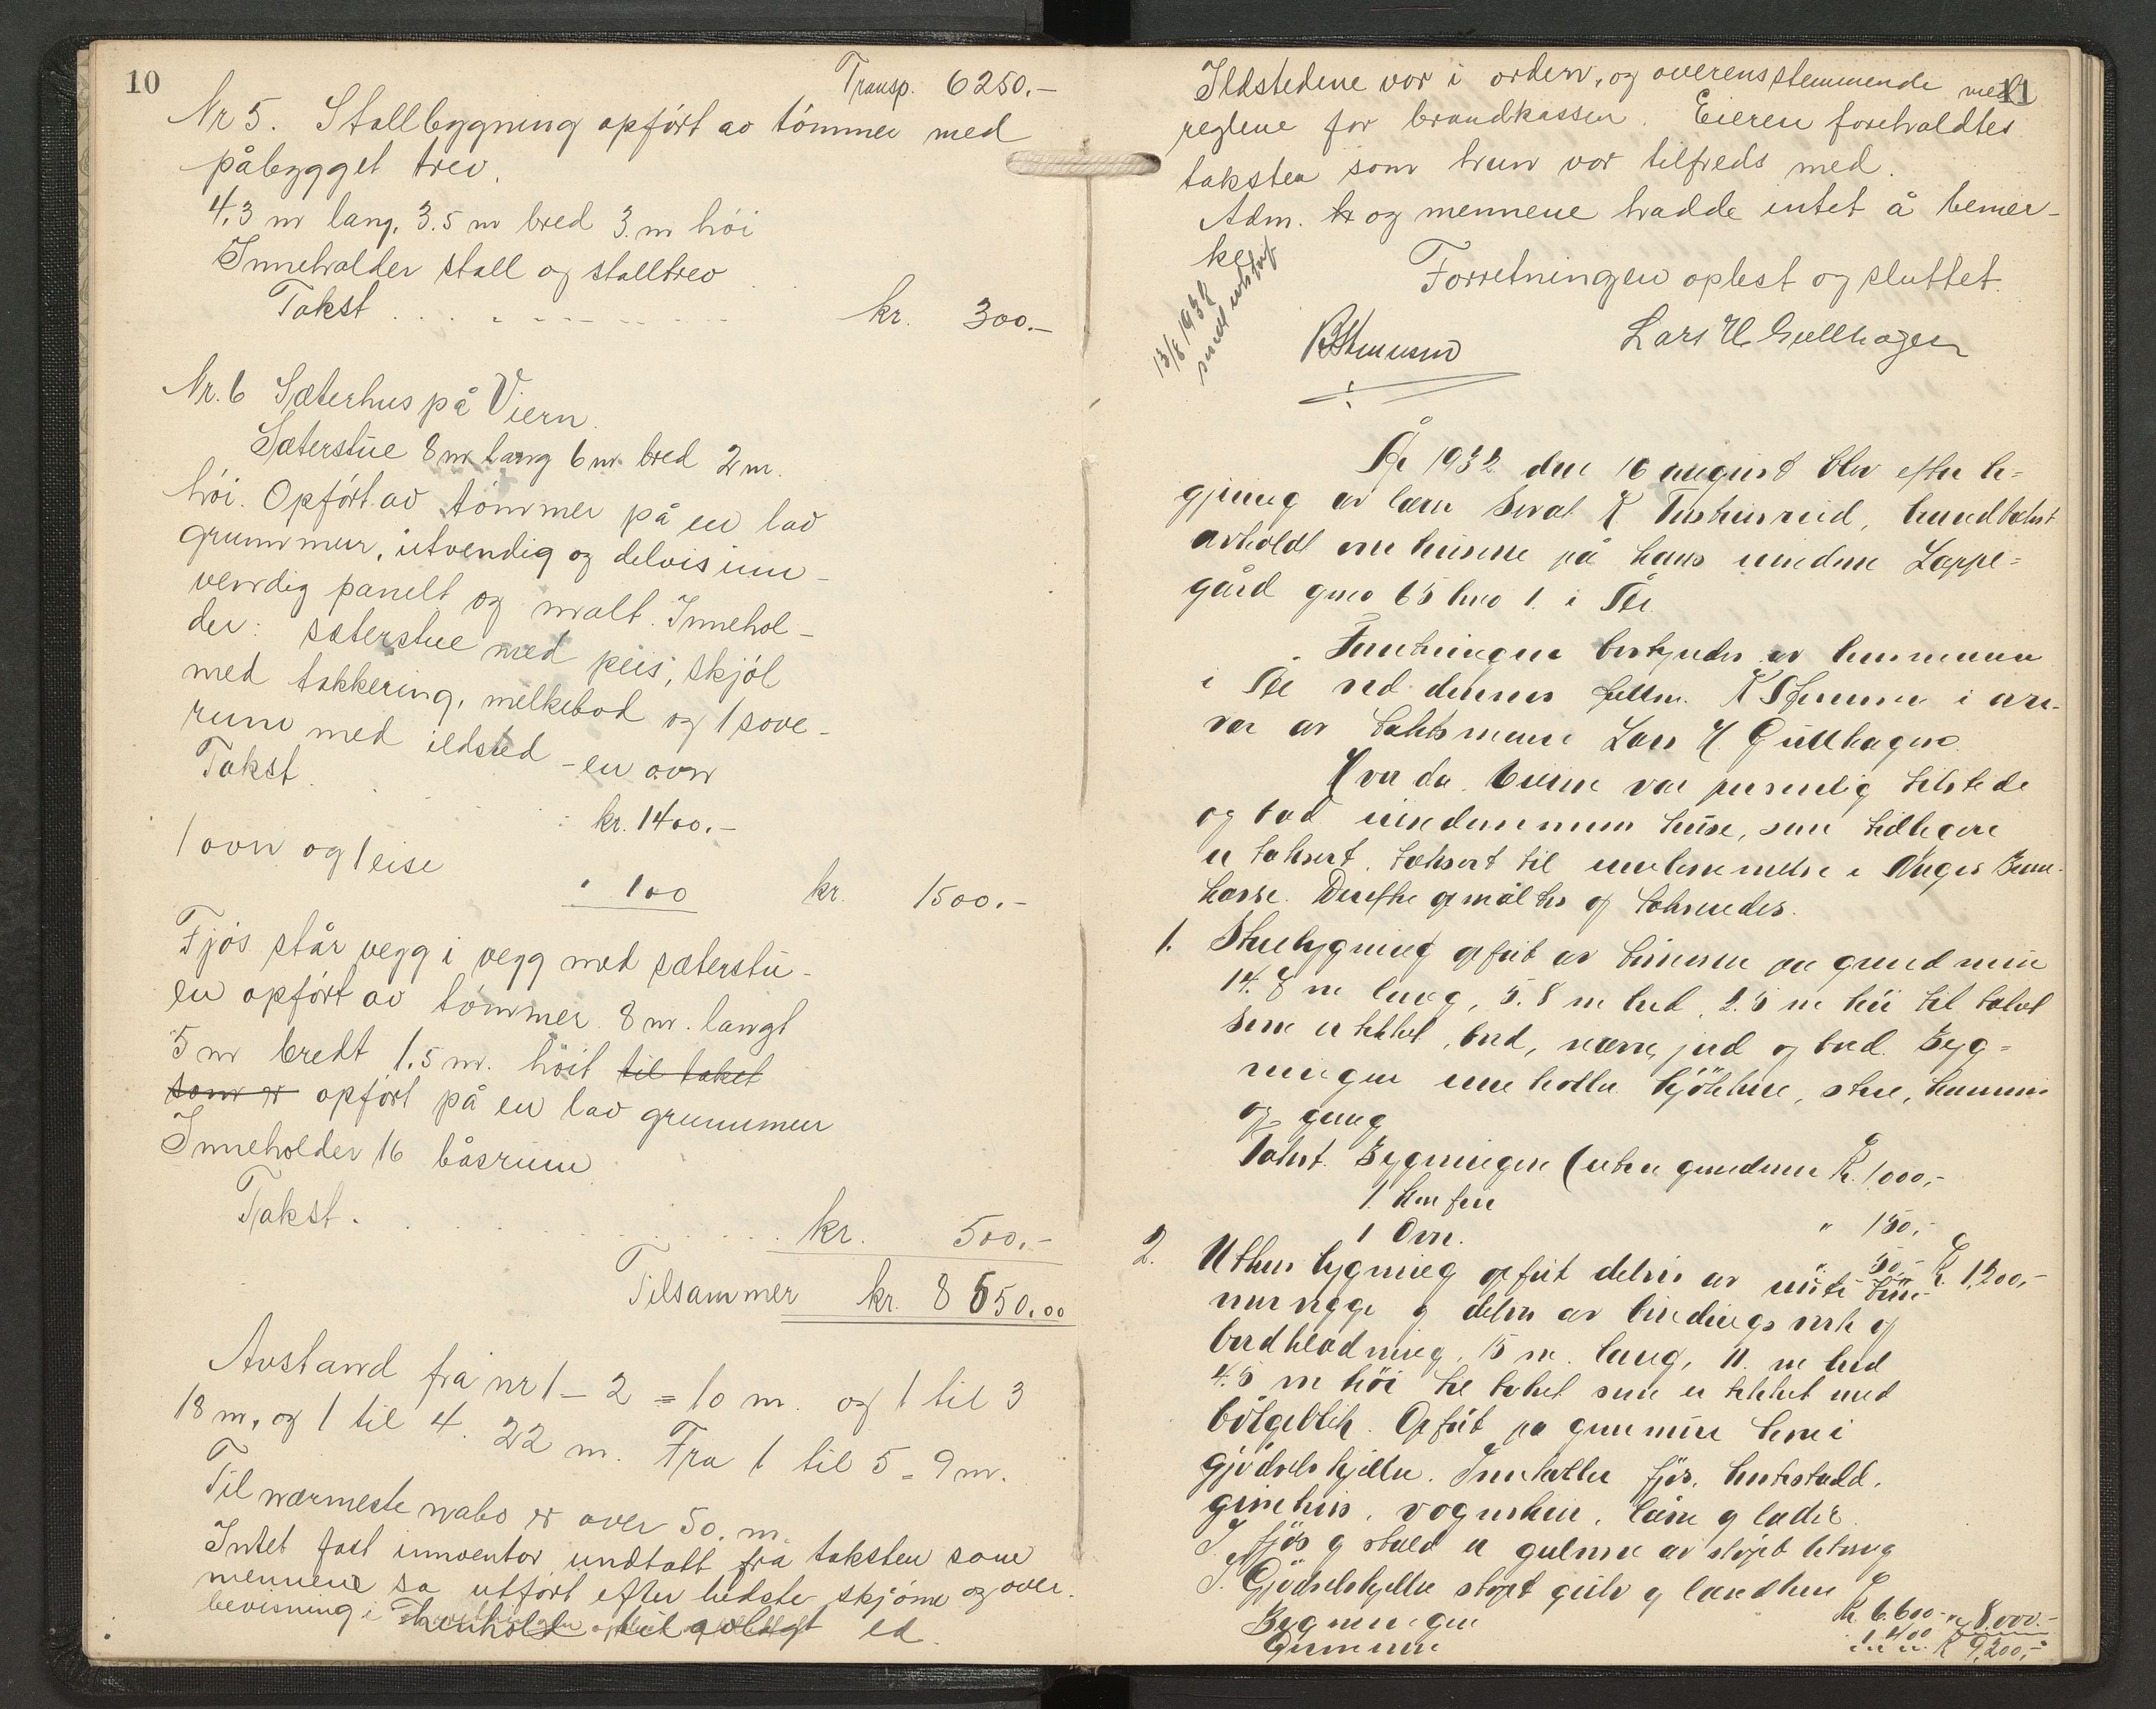 10
Transp. 6250.-
Nr 5. Stallbygning opført av tømmer med
påbygget trev.
4,3 m lang, 3.5 m bred 3. m høi
Inneholder stall og stalltrev
Takst . . . . . . . kr. 300.-
Nr. 6 Sæterhus på Viern.
Sæterstue 8 m lang 6 m bred 2 m.
høi. Opført av tømmer på en lav
grunnmur, utvendig og delvis inn-
vendig panelt og malt. Innehol-
der: sæterstue med peis, skjøl
med takkering, melkebod og 1 sove-
rum med ildsted - en ovn
Takst . . . kr. 1400.-
1 ovn og 1 eise
" 100 kr. 1500.-
Fjøs står vegg i vegg med sæterstu-
en opført av tømmer 8 m. langt
5 m bredt 1.5 m. høit til taket
som er opført på en lav grunnmur
Inneholder 16 båsrum
Takst . . . . . kr. 500.-
Tilsammen kr. 8550.00
Avstand fra nr 1 - 2 = 10 m. og 1 til 3
18 m, og 1 til 4. 22 m. Fra 1 til 5 = 9 m.
Til nærmeste nabo er over 50. m.
Intet fast inventar undtatt fra taksten som
mennene sa utført efter bedste skjønn og over-
bevisning i henhold til avlagt ed.
11
Ildstedene var i orden, og overensstemmende med
reglene for brandkassen. Eieren foreholdtes
taksten som han var tilfreds med.
Adm. og mennene hadde intet å bemer-
ke
Forretningen oplest og sluttet.
13/8 1932
Lars H Gullhagen
År 1932 den 16 august blev efter be-
gjæring av Sevat K , brandtakst
avholdt over husene på hans eiendom Loppe-
gård gno 65 bno 1. i Ål
Forretningen bestyredes av lensmannen
i Ål ved dennes fullm. K i nær-
vær av takstmann Lars H. Gullhagen.
Hvor da. Eieren var personlig tilstede
og bad eiendommens huse, som tidligere
er taksert, taksert til innlemmelse i Norges Brann-
kasse. Derefter opmåltes og takseredes.
1. Stuebygning opført av tømmer på grundmur
14.8 m lang, 5.8 m bred, 2.5 m høi til taket
som er tekket, bord, næver, jord og bord. Byg-
ningen inneholder kjøkken, stue, kammers
og gang
Takst. Bygningen (uten grundmur Kr. 1,000,-
1. Komfur
" 150,-
1 Ovn.
" 50,- Kr. 1,200,-
2. Uthusbygning opført delvis av tøm-
mervegge og delvis av bindingsverk og
bordkledning, 15 m. lang, 11. m bred
4.5 m høi til taket som er tekket med
bølgeblik. Opført på grunnmur
gjødselskjeller. Inneholder fjøs, hestestald,
grisehus, vognskur, låve og lader.
I fjøs og stald er gulvene av støpt betong
I. Gjødselskjeller støpt gulv og landkum
Bygningen Kr 6.600 - 8.000.-
Grunnmur 1.400 Kr 9,200,-